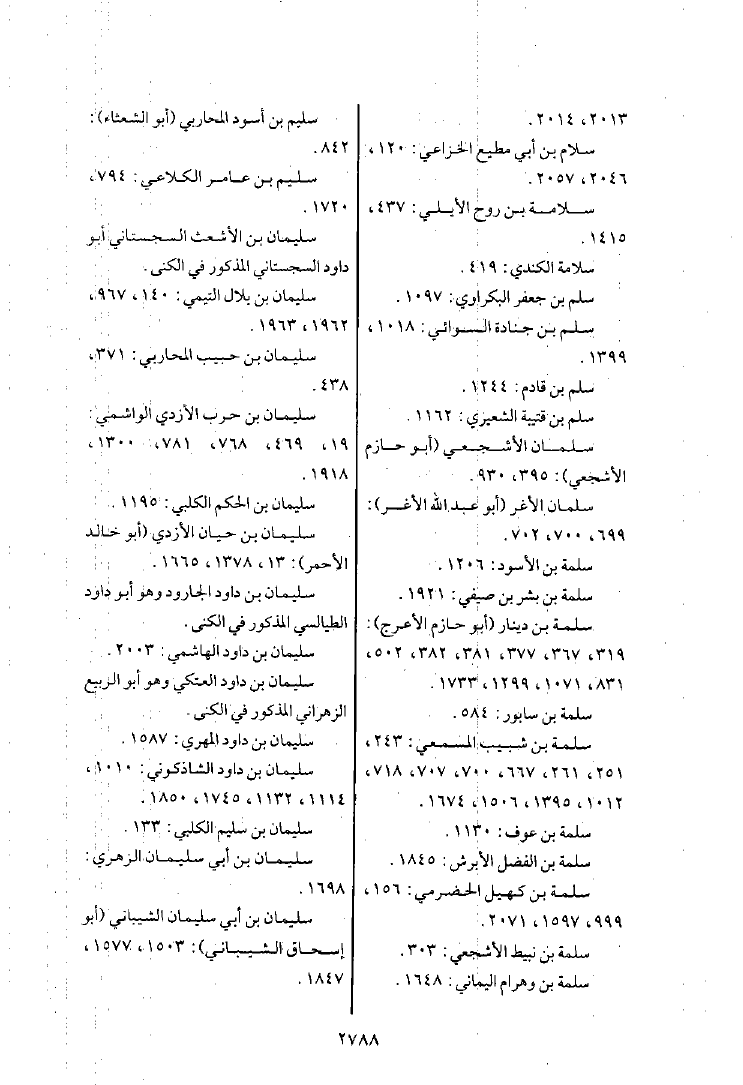 ٢٠١٣، ٢٠١٤.
سلام بن أبي مطيع الخزاعي: ١٢٠،
٢٠٤٦، ٢٠٥٧.
سلامة بن روح الأيلي: ٤٣٧،
١٤١٥.
سلامة الكندي: ٤١٩.
سلم بن جعفر البكراوي: ١٠٩٧.
سلم بن جنادة السوائي: ١٠١٨،
١٣٩٩.
سلم بن قادم: ١٢٤٤.
سلم بن قتيبة الشعيري: ١١٦٢.
سلمان الأشجعي (أبو حازم
الأشجعي): ٣٩٥، ٩٣٠.
سلمان الأغر (أبو عبد الله الأغر):
٦٩٩، ٧٠٠، ٧٠٢.
سلمة بن الأسود: ١٢٠٦.
سلمة بن بشر بن صيفي: ١٩٢١.
سلمة بن دينار (أبو حازم الأعرج):
٣١٩، ٣٦٧، ٣٧٧، ٣٨١، ٣٨٢، ٥٠٢،
٨٣١، ١٠٧١، ١٢٩٩، ١٧٣٣.
سلمة بن سابور: ٥٨٤.
سلمة بن شبيب المسمعي: ٢٤٣،
٢٥١، ٢٦١، ٦٦٧، ٧٠٠، ٧٠٧، ٧١٨،
١٠١٢، ١٣٩٥، ١٥٠٦، ١٦٧٤.
سلمة بن عوف: ١١٣٠.
سلمة بن الفضل الأبرش: ١٨٤٥.
سلمة بن كهيل الحضرمي: ١٥٦،
٩٩٩، ١٥٩٧، ٢٠٧١.
سلمة بن نبيط الأشجعي: ٣٠٣.
سلمة بن وهرام اليماني: ١٦٤٨.
سليم بن أسود المحاربي (أبو الشعثاء):
٨٤٢.
سليم بن عامر الكلاعي: ٧٩٤،
١٧٢٠.
سليمان بن الأشعث السجستاني أبو
داود السجستاني المذكور في الكنى.
سليمان بن بلال التيمي: ١٤٠، ٩٦٧،
١٩٦٢، ١٩٦٣.
سليمان بن حبيب المحاربي: ٣٧١،
٤٣٨.
سليمان بن حرب الأزدي الواشمي:
١٩، ٤٦٩، ٧٦٨، ٧٨١، ١٣٠٠،
١٩١٨.
سليمان بن الحكم الكلبي: ١١٩٥.
سليمان بن حيان الأزدي (أبو خالد
الأحمر): ١٣، ١٣٧٨، ١٦٦٥.
سليمان بن داود الجارود وهو أبو داود
الطيالسي المذكور في الكنى.
سليمان بن داود الهاشمي: ٢٠٠٣.
سليمان بن داود العتكي وهو أبو الربيع
الزهراني المذكور في الكنى.
سليمان بن داود المهري: ١٥٨٧.
سليمان بن داود الشاذكوني: ١٠١٠،
١١١٤، ١١٣٢، ١٧٤٥، ١٨٥٠.
سليمان بن سليم الكلبي: ١٣٣.
سليمان بن أبي سليمان الزهري:
١٦٩٨.
سليمان بن أبي سليمان الشيباني (أبو
إسحاق الشيباني): ١٥٠٣، ١٥٧٧،
١٨٤٧.
٢٧٨٨